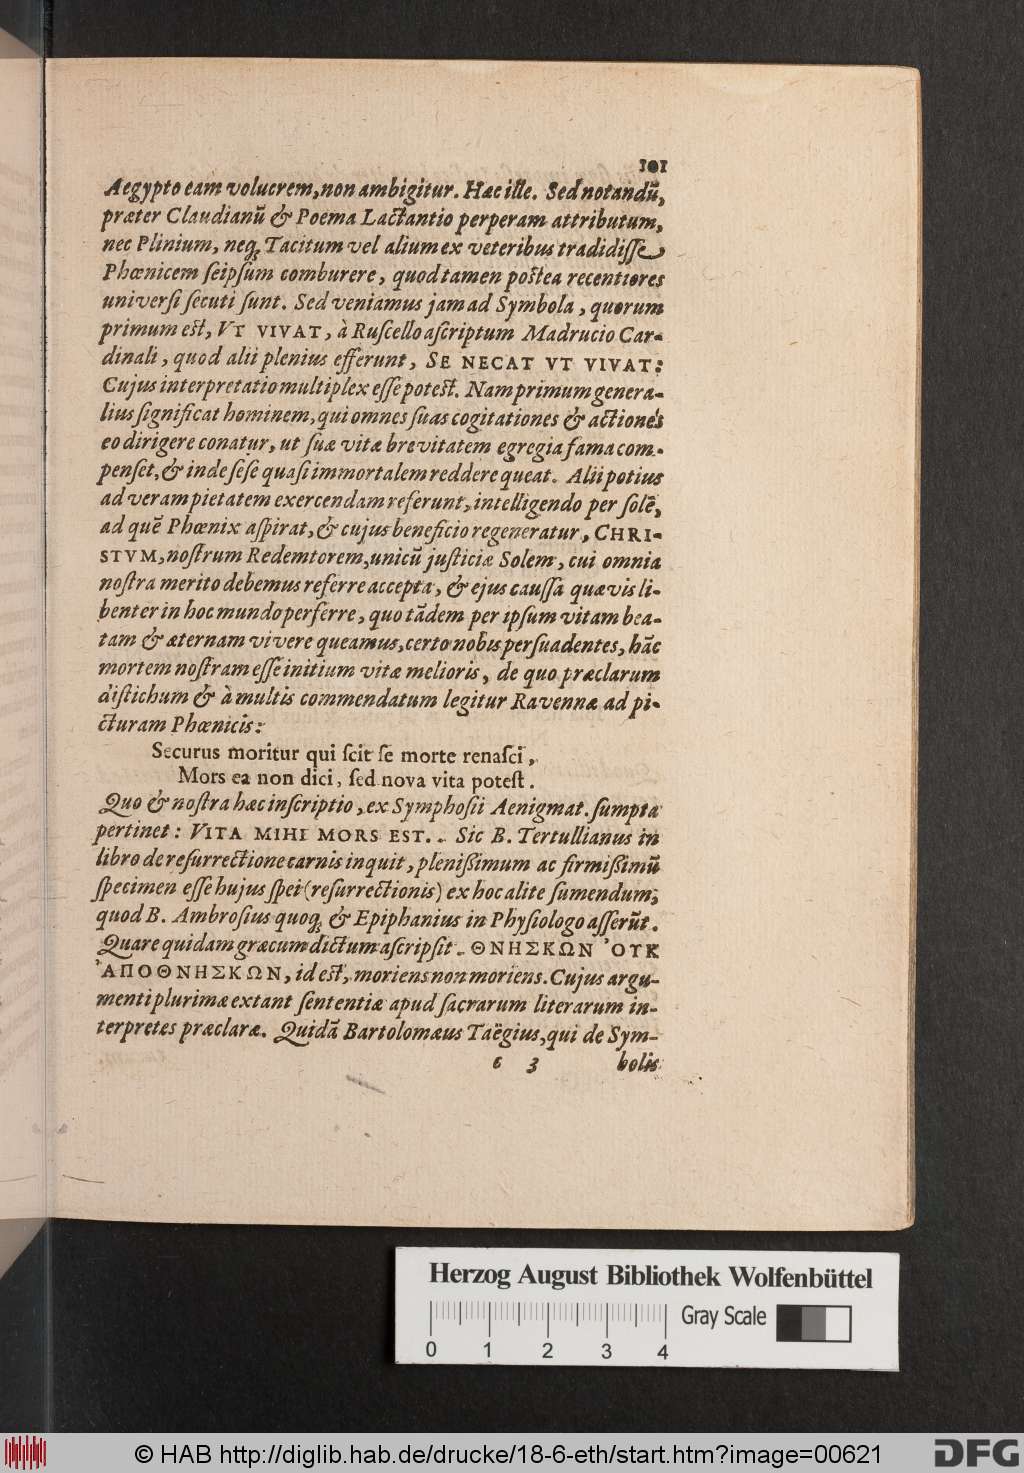 101
Aegypto eam volucrem, non ambigitur. Hæc ille. Sed notandũ,
præter Claudianũ & Poema Lactantio perperam attributum,
nec Plinium, neq; Tacitum vel alium ex veteribus tradidisse
Phœnicem seipsum comburere, quod tamen postea recentiores
universi secuti sunt. Sed veniamus jam ad Symbola, quorum
primum est, VT VIVAT, à Ruscello ascriptum Madrucio Car-
dinali, quod alii plenius efferunt, SE NECAT VT VIVAT:
Cujus interpretatio multiplex esse potest. Nam primum genera-
lius significat hominem, qui omnes suas cogitationes & actiones
eo dirigere conatur, ut suæ vitæ brevitatem egregia fama com-
penset, & inde sese quasi immortalem reddere queat. Alii potius
ad veram pietatem exercendam referunt, intelligendo per solē,
ad quē Phœnix aspirat, & cujus beneficio regeneratur, CHRI-
STVM, nostrum Redemtorem, unicũ justiciæ Solem, cui omnia
nostra merito debemus referre accepta, & ejus caussa quævis li-
benter in hoc mundo perferre, quo tãdem per ipsum vitam bea-
tam & æternam vivere queamus, certo nobis persuadentes, hãc
mortem nostram esse initium vitæ melioris, de quo præclarum
distichum & à multis commendatum legitur Ravennæ ad pi-
cturam Phœnicis:
Securus moritur qui scit se morte renasci,
Mors ea non dici, sed nova vita potest.
Quo & nostra hæc inscriptio, ex Symphosii Aenigmat. sumpta
pertinet: VITA MIHI MORS EST. Sic B. Tertullianus in
libro de resurrectione carnis inquit, plenißimum ac firmißimũ
specimen esse hujus spei (resurrectionis) ex hoc alite sumendum;
quod B. Ambrosius quoq; & Epiphanius in Physiologo asserũt.
Quare quidam græcum dictum ascripsit. ΘΝΗΣΚΩΝ ʼΟΥΚ
ʼΑΠΟΘΝΗΣΚΩΝ, id est, moriens non moriens. Cujus argu-
menti plurimæ extant sententiæ apud sacrarum literarum in-
terpretes præclaræ. Quidã Bartolomæus Taëgius, qui de Sym-
c 3 bolis
Herzog August Bibliothek Wolfenbüttel
Gray Scale
0 1 2 3 4
© HAB http://diglib.hab.de/drucke/18-6-eth/start.htm?image=00621
DFG